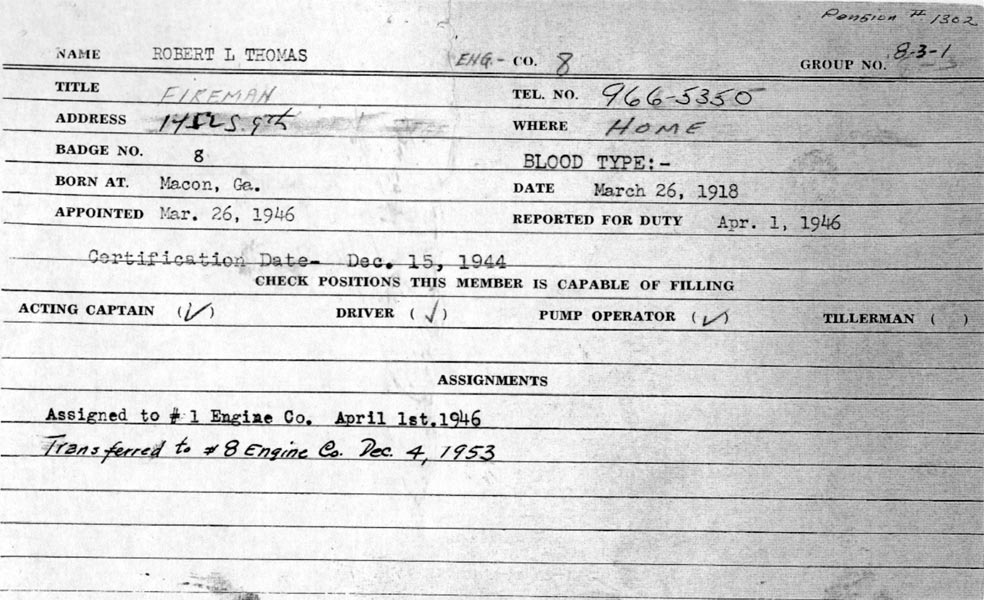 Pension # 1302
NAME ROBERT L THOMAS ENG.- CO. 8 GROUP NO. 8-3-1
TITLE FIREMAN TEL. NO. 966-5350
ADDRESS 1452 S. 9th WHERE HOME
BADGE NO. 8 BLOOD TYPE:-
BORN AT. Macon, Ga. DATE March 26, 1918
APPOINTED Mar. 26, 1946 REPORTED FOR DUTY Apr. 1, 1946
Certification Date- Dec. 15, 1944
CHECK POSITIONS THIS MEMBER IS CAPABLE OF FILLING
ACTING CAPTAIN (✓) DRIVER (✓) PUMP OPERATOR (✓) TILLERMAN ( )
ASSIGNMENTS
Assigned to # 1 Engine Co. April 1st.1946
Transferred to # 8 Engine Co. Dec. 4, 1953